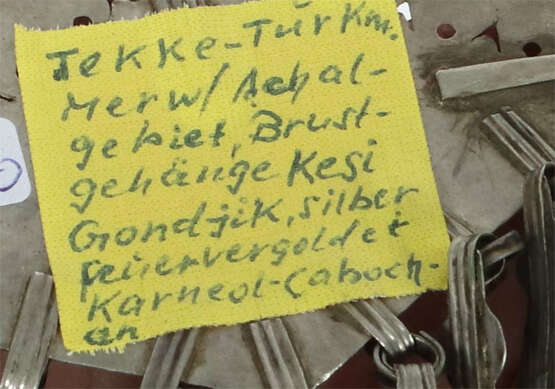 Tekke-Türkm.
Merw/Achal-
gebiet, Brust-
gehänge Kesi
Gondjik, silber
feuervergoldet
Karneol-Caboch-
an